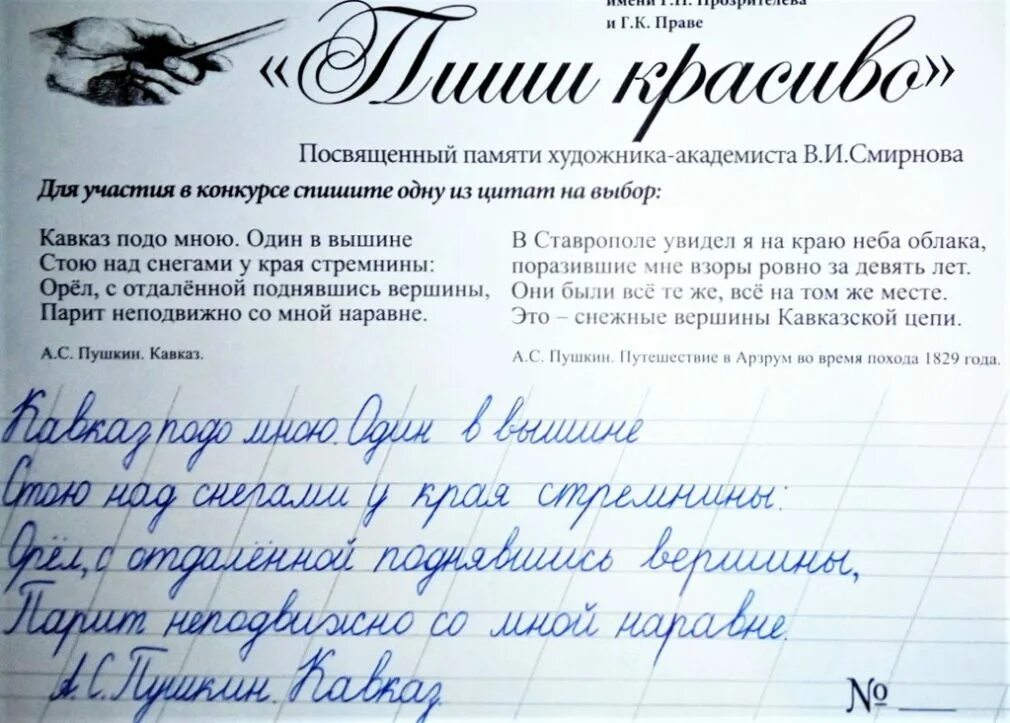 имени Г.Н. Прозрителева
и Г.К. Праве
«Пиши красиво»
Посвященный памяти художника-академиста В.И.Смирнова
Для участия в конкурсе спишите одну из цитат на выбор:
Кавказ подо мною. Один в вышине
Стою над снегами у края стремнины:
Орёл, с отдалённой поднявшись вершины,
Парит неподвижно со мной наравне.
А.С. Пушкин. Кавказ.
В Ставрополе увидел я на краю неба облака,
поразившие мне взоры ровно за девять лет.
Они были всё те же, всё на том же месте.
Это – снежные вершины Кавказской цепи.
А.С. Пушкин. Путешествие в Арзрум во время похода 1829 года.
Кавказ подо мною. Один в вышине
Стою над снегами у края стремнины:
Орёл, с отдалённой поднявшись вершины,
Парит неподвижно со мной наравне.
А.С. Пушкин. Кавказ.
№ ___